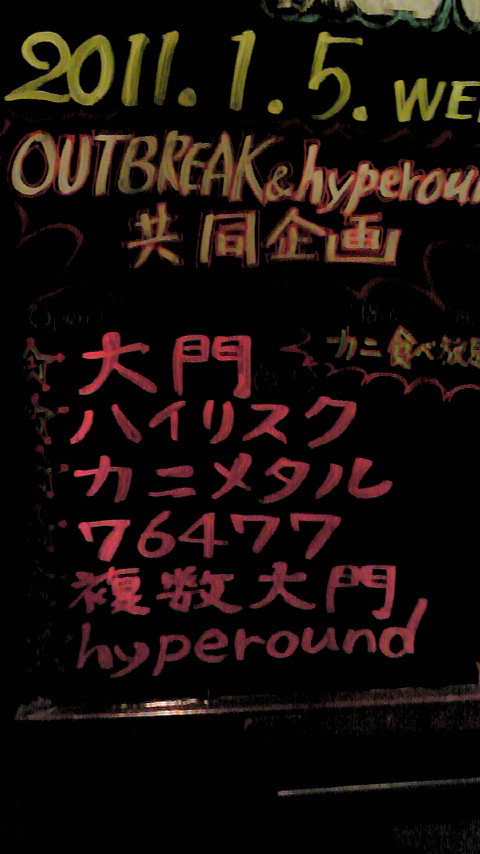 2011.1.5. WE
OUTBREAK & hyperou
共同企画
Open
大門
カニ食べ放
ハイリスク
カニメタル
76477
複数大門
hyperound